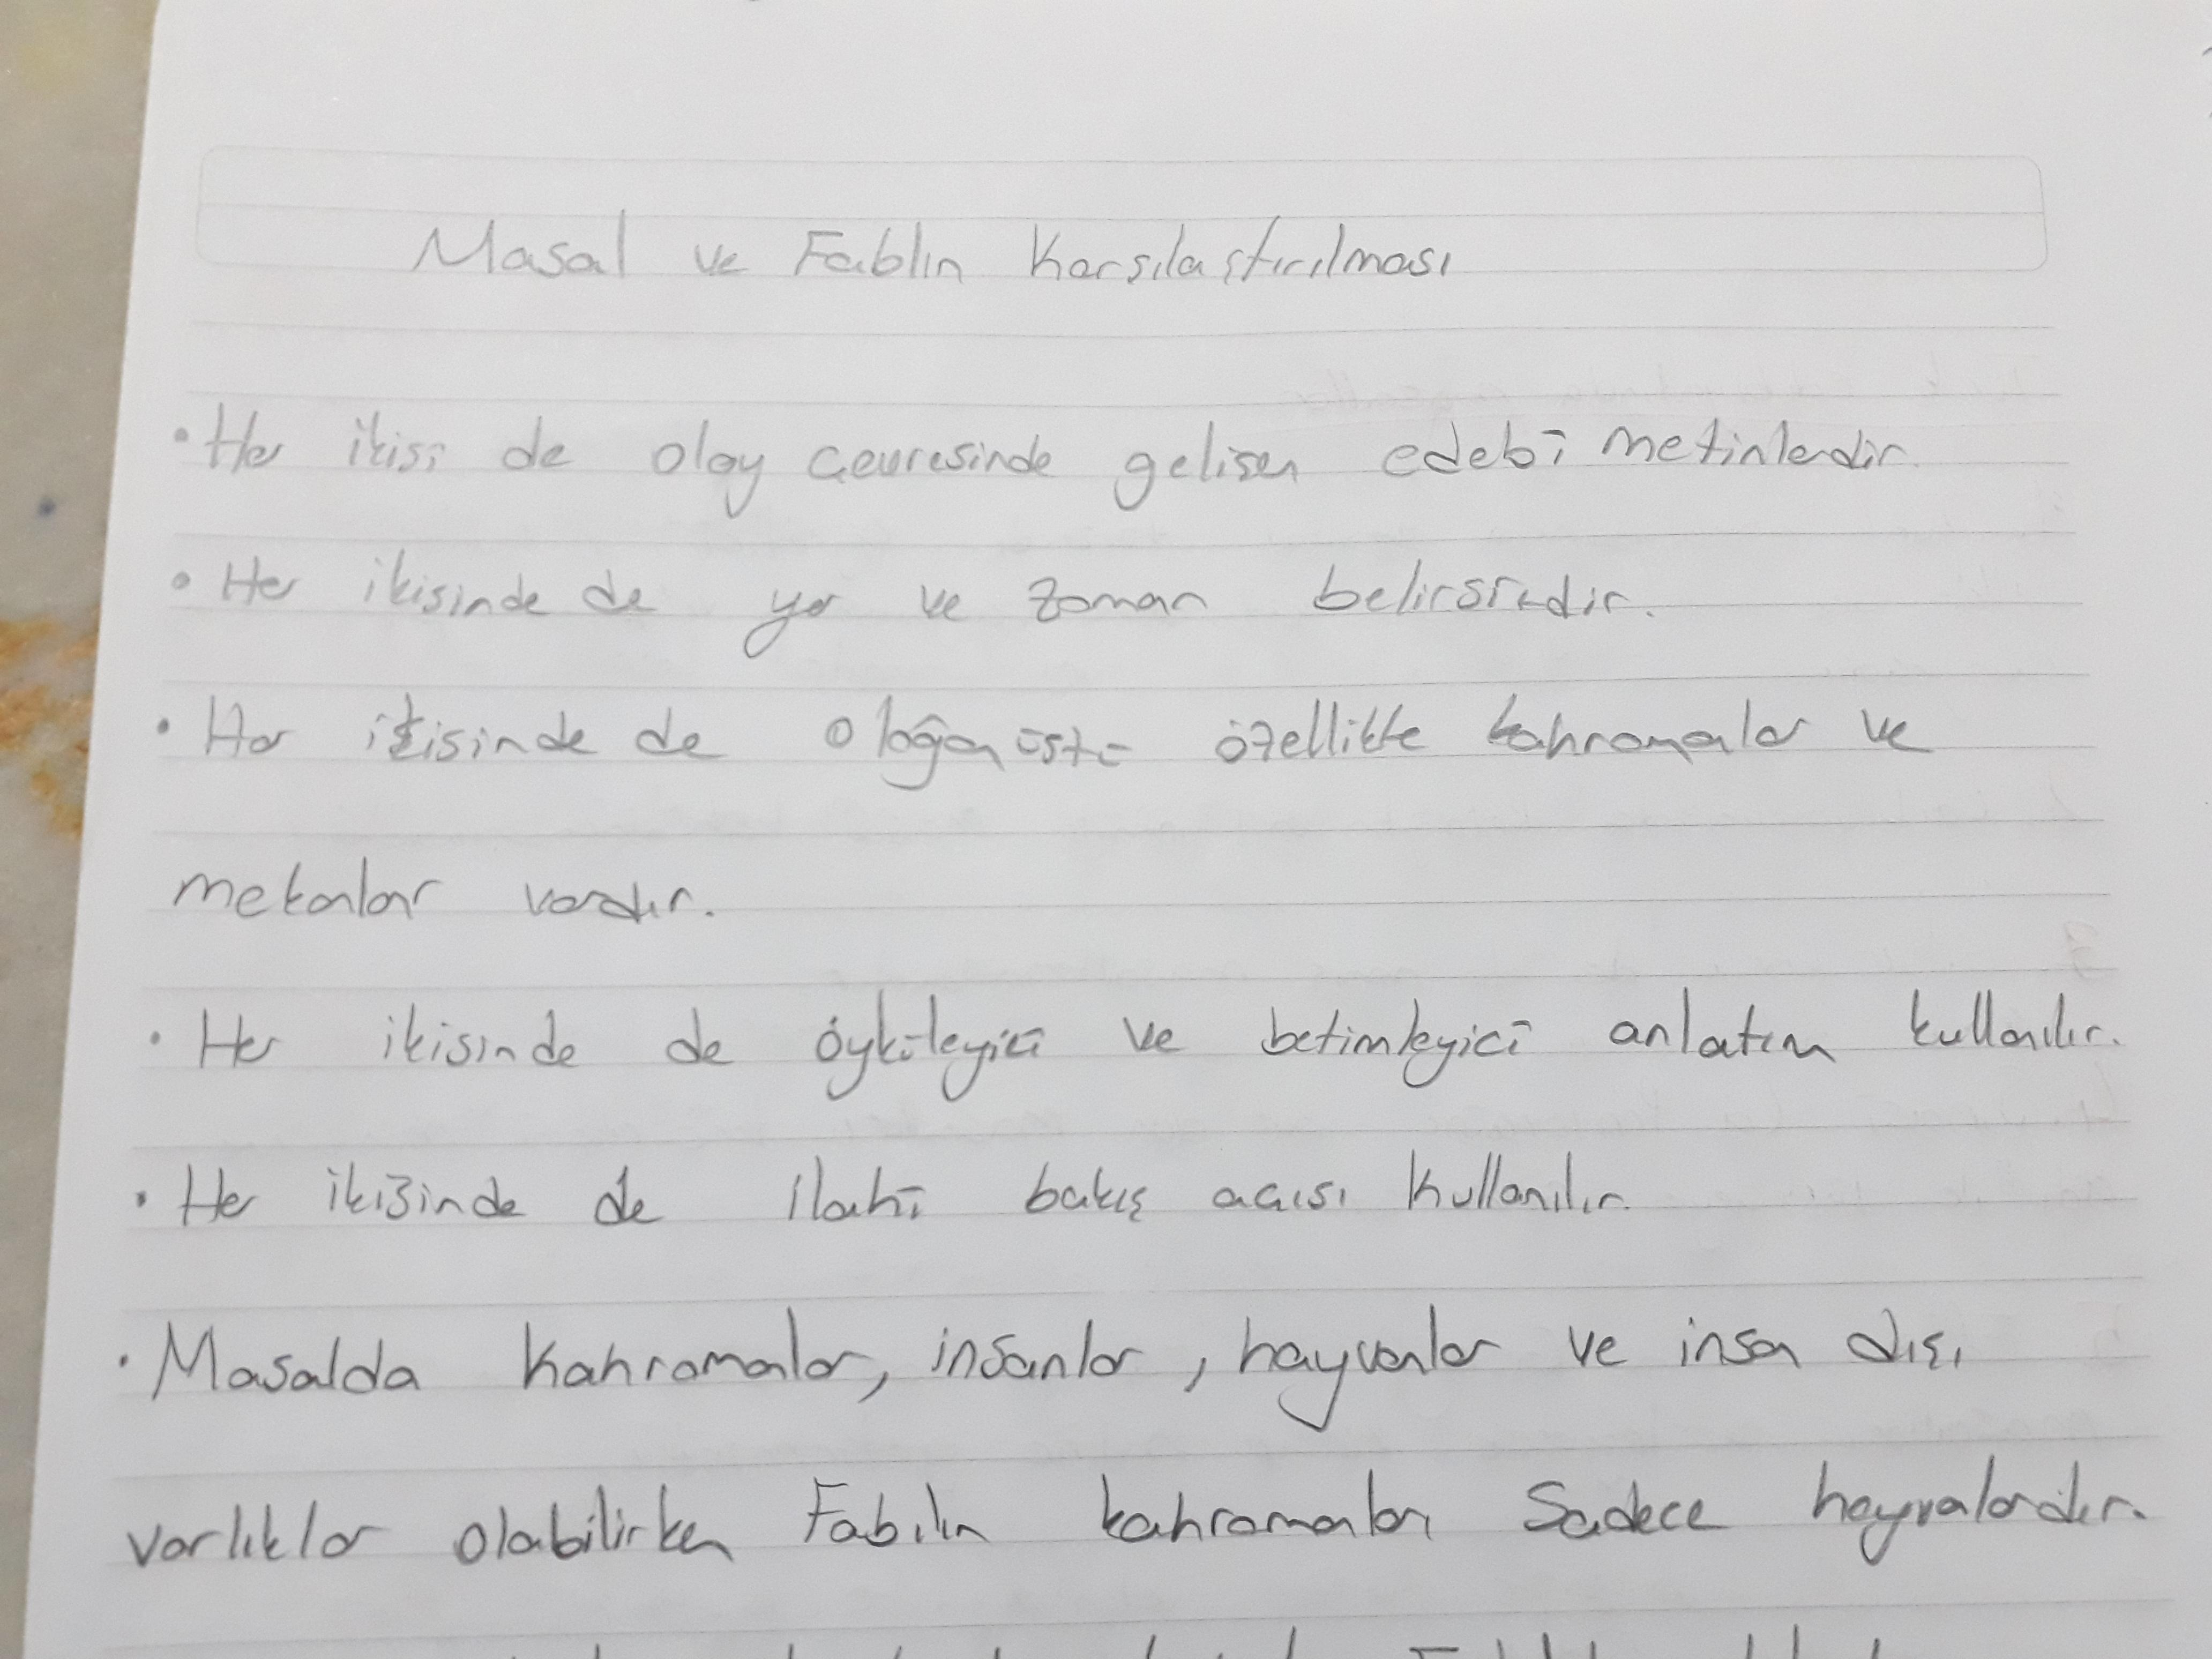 Masal ve Fablın Karşılaştırılması
• Her ikisi de olay çevresinde gelişen edebî metinlerdir.
• Her ikisinde de yer ve zaman belirsizdir.
• Her ikisinde de olağanüstü özellikte kahramanlar ve
mekanlar vardır.
• Her ikisinde de öyküleyici ve betimleyici anlatım kullanılır.
• Her ikisinde de ilahi bakış açısı kullanılır.
• Masalda kahramanlar, insanlar, hayvanlar ve insan dışı
varlıklar olabilirken Fabılın kahramanları sadece hayvanlardır.